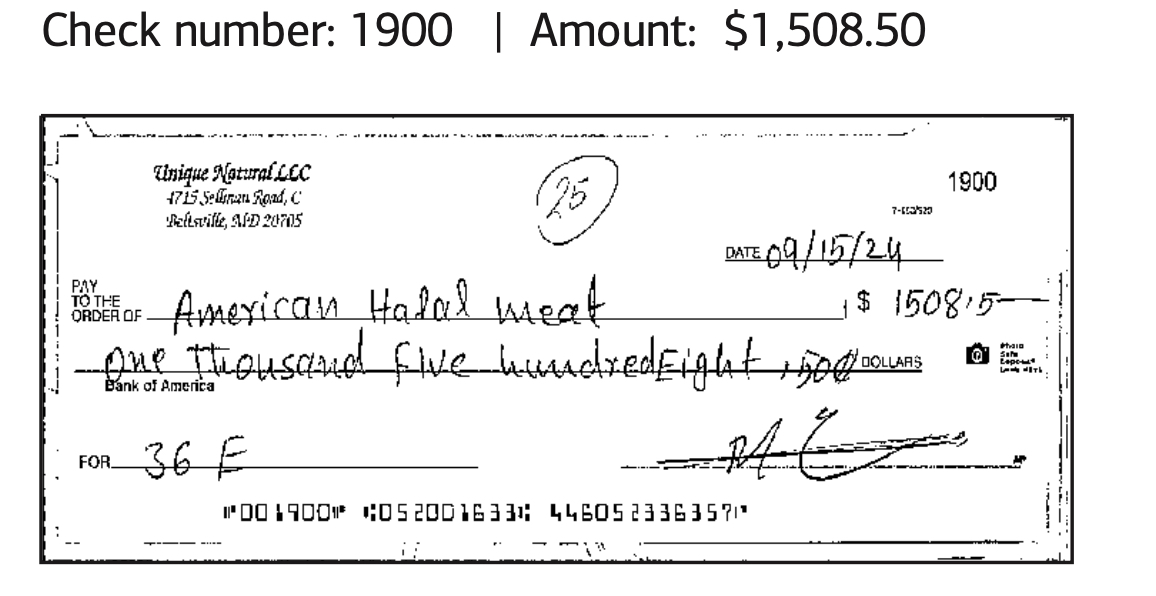 Check number: 1900 | Amount: $1,508.50
Unique Natural LLC
4715 Sellman Road, C
Beltsville, MD 20705
25
1900
DATE 09/15/24
PAY
TO THE
ORDER OF American Halal meat $ 1508.5
One Thousand five hundred Eight .50¢ DOLLARS
Photo
Safe
Deposit®
Bank of America
FOR 36 E
MP
⑈001900⑈ ⑆052001633⑆ 446052336357⑈